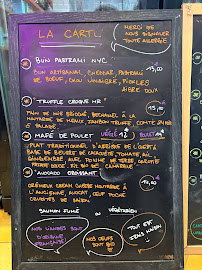 LA CARTE
MERCI DE
NOUS SIGNALER
TOUTE ALLERGIE
BUN PASTRAMI NYC
BUN ARTISANAL, CHEDDAR, PASTRAMI
DE BOEUF, CHOU VINAIGRE, PICKLES
AIGRE DOUX
TRUFFLE CROQUE MR
PAIN DE MIE BRIOCHÉ, BÉCHAMEL À LA
MOUTARDE DE MEAUX, JAMBON TRUFFÉ, COMTÉ
& SALADE
MAFÉ DE POULET
PLAT TRADITIONNEL D'AFRIQUE DE L'OUEST À
BASE DE BEURRE DE CACAHUÈTE, TOMATE, AIL
GINGEMBRE AVEC POMME DE TERRE, CAROTTE
PATATE DOUCE, RIZ
AVOCADO CROISSANT
CRÉMEUX CREAM CHEESE MOUTARDE À
L'ANCIENNE, AVOCAT, OEUF POCHÉ
CRUDITÉS DE SAISON
SAUMON FUMÉ OU VÉGÉTARIEN
NOS VIANDES SONT
D'ORIGINE
FRANÇAISE
NOS OEUFS
SONT BIO
TOUT EST
FAIT MAISON